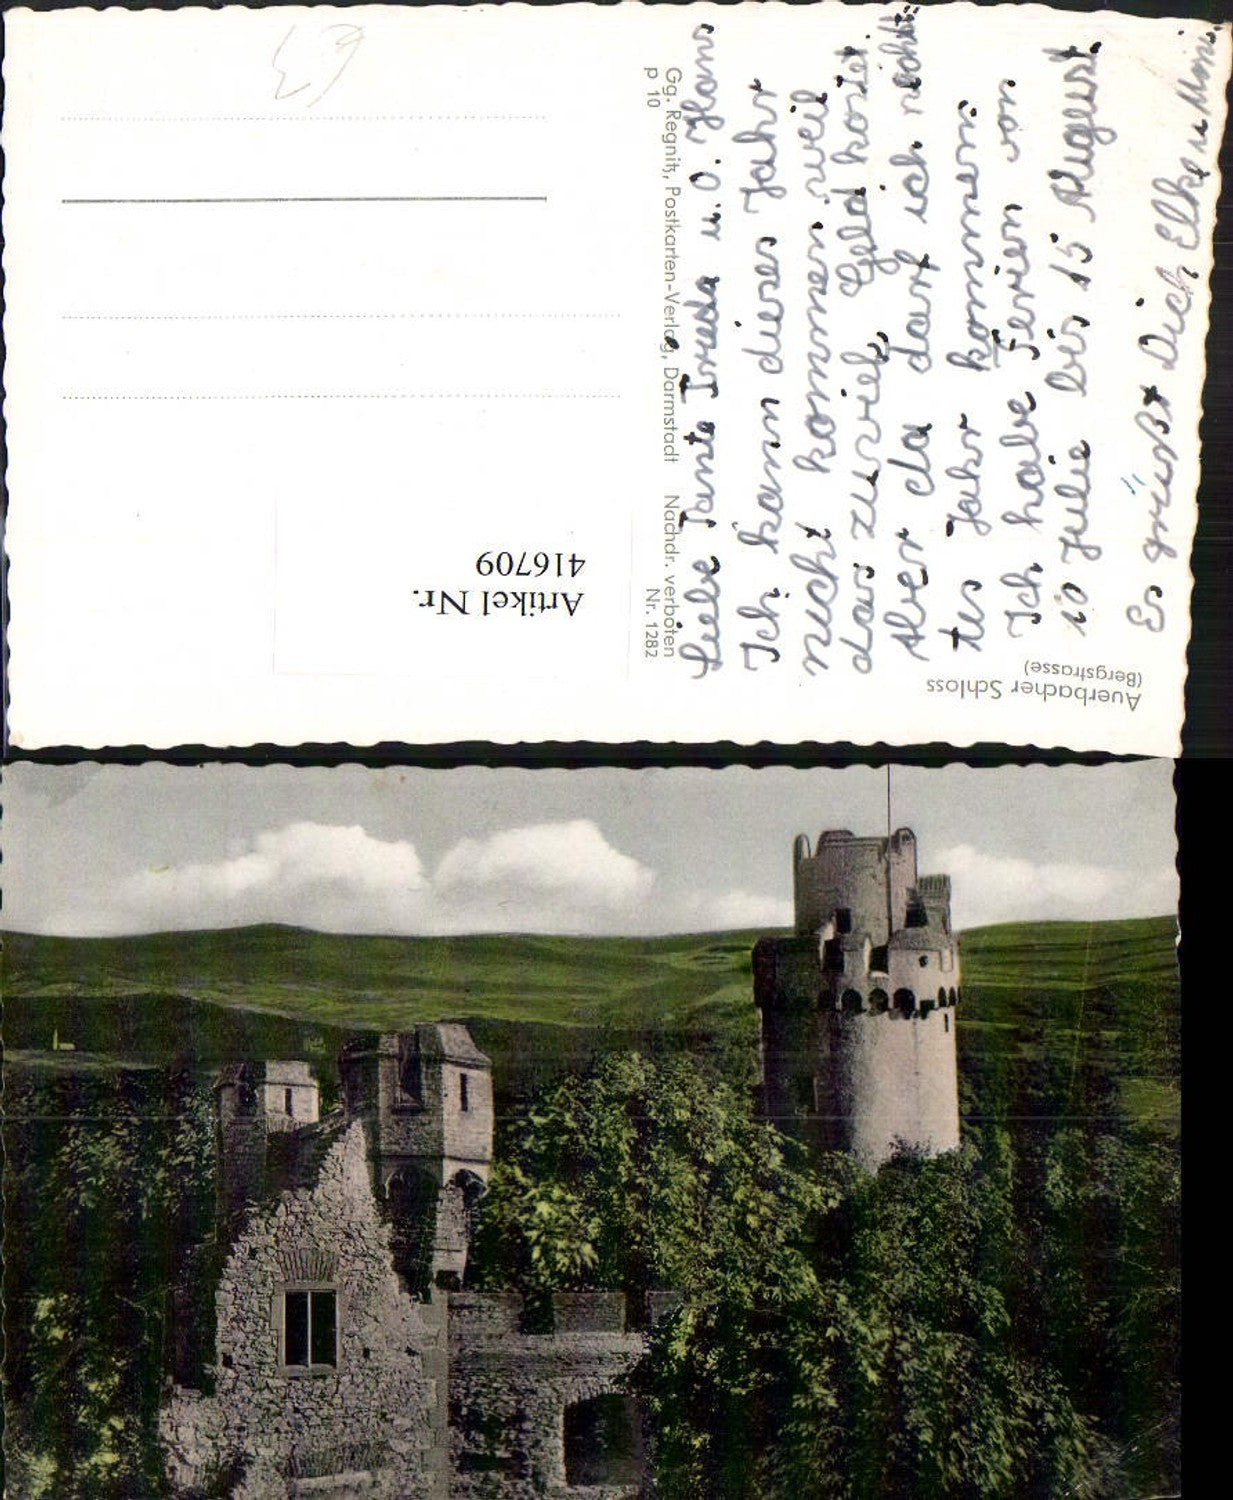 Auerbacher Schloss
(Bergstrasse)
Liebe Tante Irmeda u. O. Hans
Ich kann dieses Jahr
nicht kommen weil
das zuviel Geld kostet.
Aber da darf ich nächs=
tes Jahr kommem.
Ich habe Ferien von
10 Julie bis 15 August.
Es grüßt Dich Elke u
Gg. Regnitz, Postkarten-Verlag, Darmstadt Nachdr. verboten
P 10 Nr. 1282
Artikel Nr.
416709